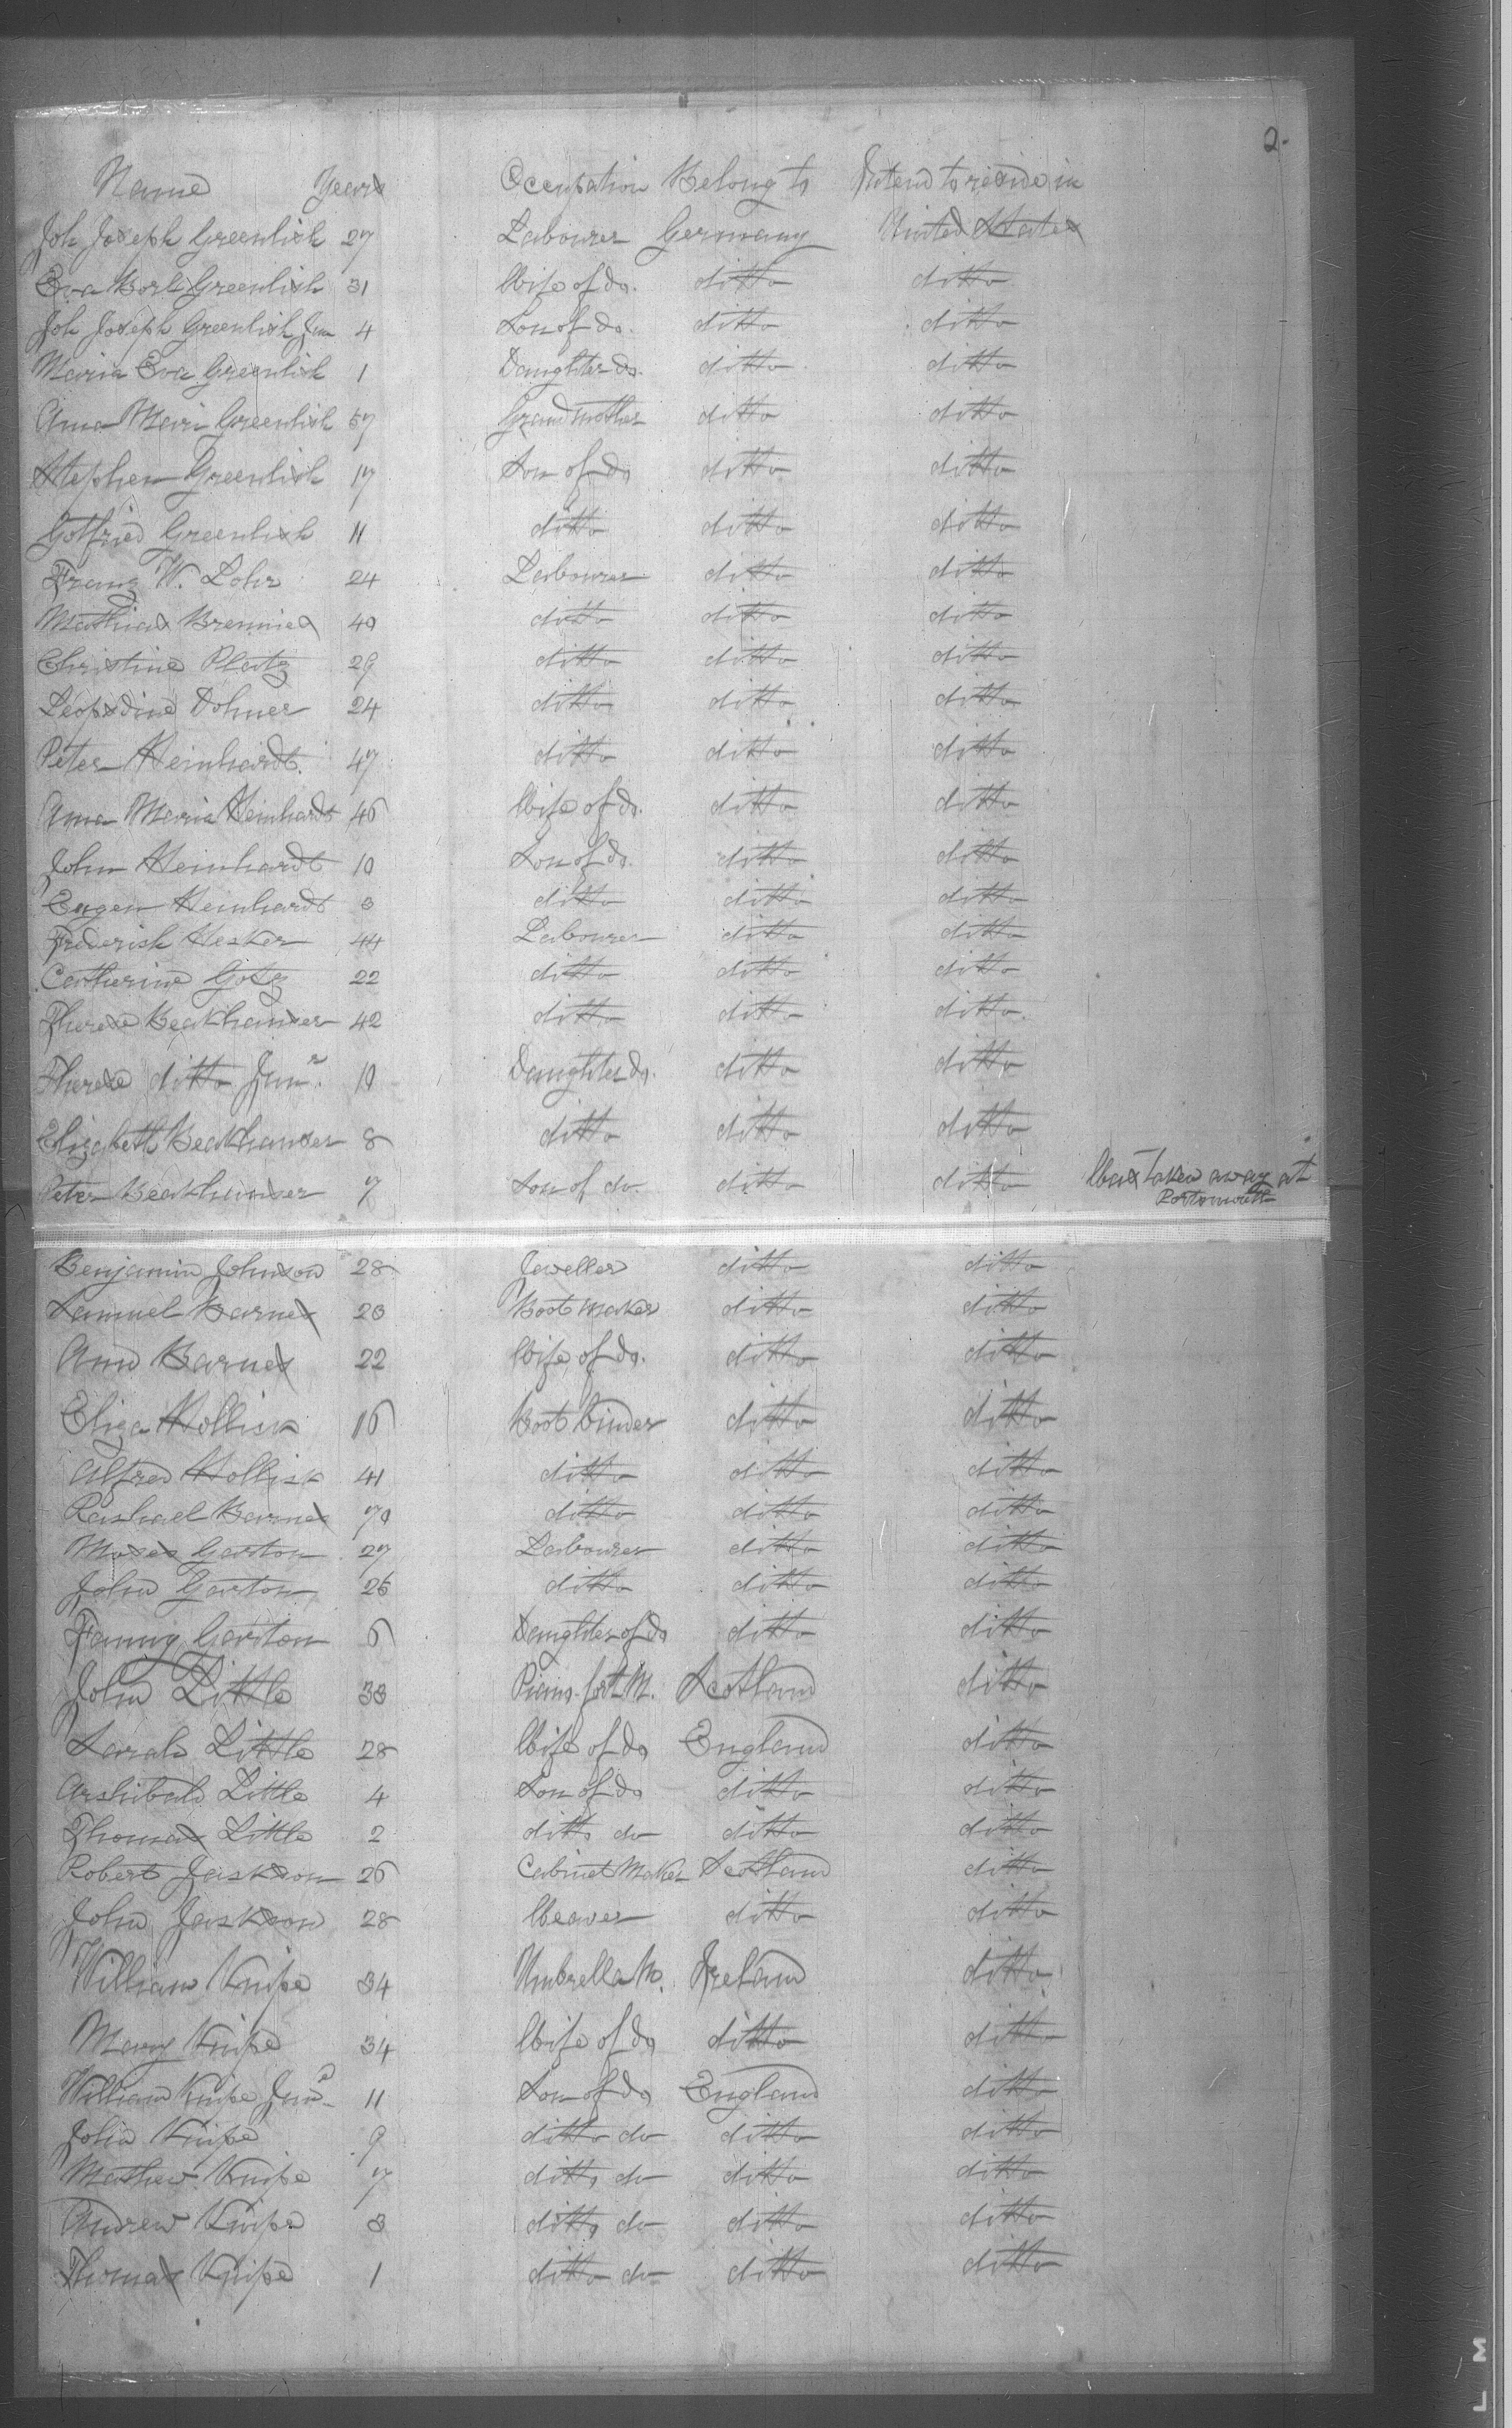 2.
Name Years Occupation Belong to Intend to reside in
Joh Joseph Greenlish 27 Labourer Germany United States
Eva Greenlish 31 Wife of do. ditto ditto
Joh Joseph Greenlish Jun 4 Son of do. ditto ditto
Maria Eva Greenlish 1 Daughter do. ditto ditto
Anna Mari Greenlish 57 Grandmother ditto ditto
Stephen Greenlish 17 Son of do ditto ditto
Gotfried Greenlish 11 ditto ditto ditto
Franz W. Lohr 24 Labourer ditto ditto
Mathias 40 ditto ditto ditto
Christine Platz 29 ditto ditto ditto
Leopodine Dohner 24 ditto ditto ditto
Peter Heinhardt. 47 ditto ditto ditto
Anna Maria Heinhardt 46 Wife of do. ditto ditto
John Heinhardt 10 Son of do. ditto ditto
Eugen Heinhardt 3 ditto ditto ditto
Frederick Hecker 44 Labourer ditto ditto
Catherine Gotz 22 ditto ditto ditto
Therese Beakhauser 42 ditto ditto ditto
Therese ditto Junr. 10 Daughter do. ditto ditto
Elizabeth Beakhauser 8 ditto ditto ditto
Peter Beakhauser 7 Son of do. ditto ditto Was taken away at
Portsmouth
Benjamin Johnson 28 Jeweller ditto ditto
Samuel Barnes 23 Boot maker ditto ditto
Ann Barnes 22 Wife of do. ditto ditto
Eliza Hollick 16 Boot binder ditto ditto
Alfred Hollick 41 ditto ditto ditto
Rachael Barnes 70 ditto ditto ditto
Moses Garton 27 Labourer ditto ditto
John Garton 26 ditto ditto ditto
Fanny Garton 6 Daughter of do ditto ditto
John Little 33 Piano-fort M. Scotland ditto
Sarah Little 28 Wife of do England ditto
Archibald Little 4 Son of do ditto ditto
Thomas Little 2 ditto do ditto ditto
Robert Jackson 26 Cabinet Maker Scotland ditto
John Jackson 28 Weaver ditto ditto
William Knipe 34 Umbrella M. Ireland ditto
Mary Knipe 34 Wife of do ditto ditto
William Knipe Junr. 11 Son of do England ditto
John Knipe 9 ditto do ditto ditto
Mathew Knipe 7 ditto do ditto ditto
Andrew Knipe 3 ditto do ditto ditto
Thomas Knipe 1 ditto do ditto ditto
L M